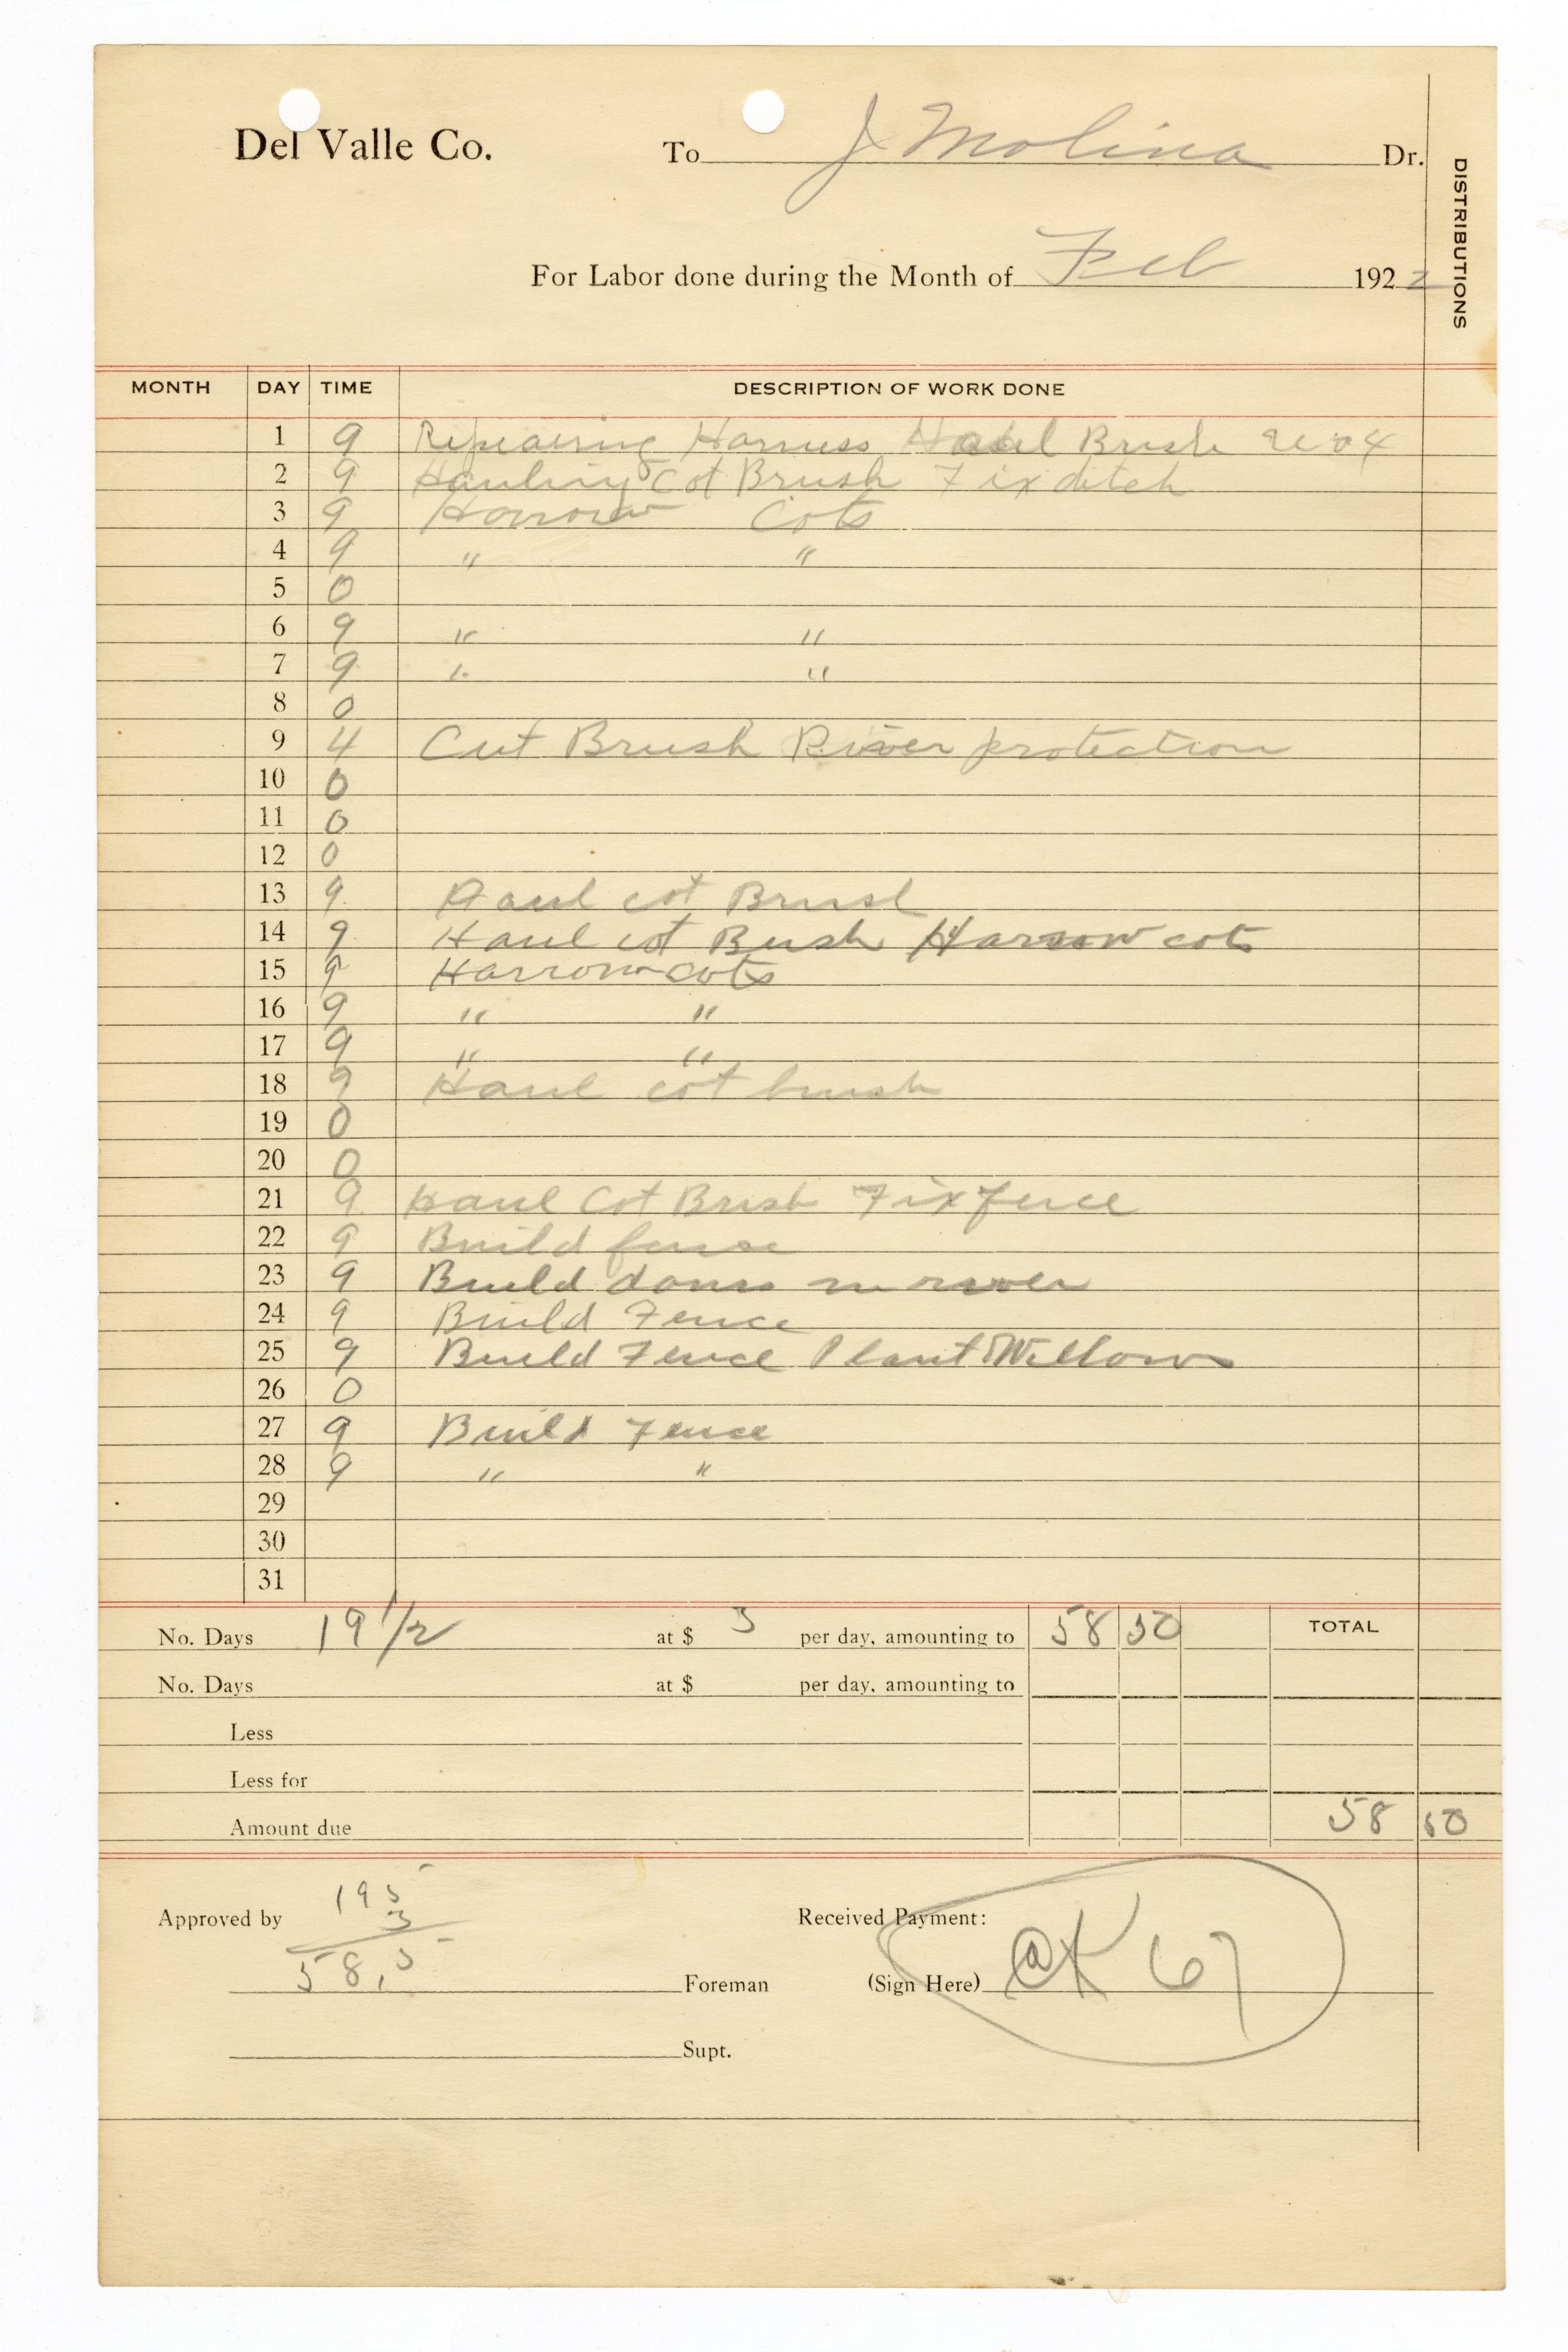 Del Valle Co. To J Molina Dr.
DISTRIBUTIONS
For Labor done during the Month of Feb 1922
MONTH DAY TIME DESCRIPTION OF WORK DONE
1 9 Repairing Harness Haul Brush
2 9 Hauling Cot Brush Fix ditch
3 9 Harrow Cots
4 9 " "
5 0
6 9 " "
7 9 " "
8 0
9 4 Cut Brush River protection
10 0
11 0
12 0
13 9 Haul cot Brush
14 9 Haul cot Bush Harrow cots
15 9 Harrow cots
16 9 " "
17 9 " "
18 9 Haul cot brush
19 0
20 0
21 9 Haul Cot Brush Fix fence
22 9 Build fense
23 9 Build dams in river
24 9 Build Fence
25 9 Build Fence Plant Willows
26 0
27 9 Build Fence
28 9 " "
29
30
31
No. Days 19 1/2 at $ 3 per day, amounting to 58 50 TOTAL
No. Days at $ per day, amounting to
Less
Less for
Amount due 58 50
19 5
Approved by 3 Received Payment:
58,5 Foreman (Sign Here) OK 67
Supt.